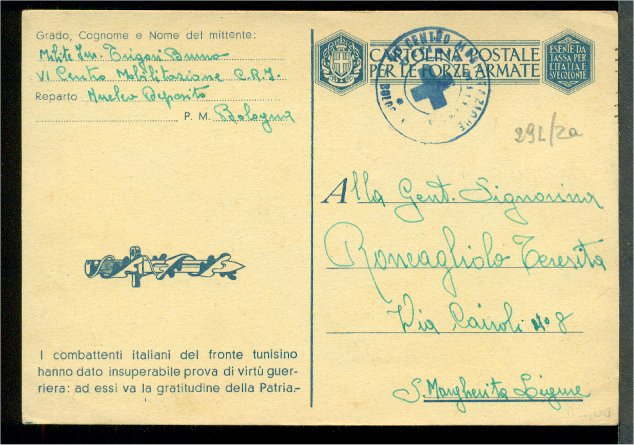 Grado, Cognome e Nome del mittente:
Milite Inv. Trigari Bruno
VI Centro Mobilitazione C.R.I.
Reparto Nucleo Deposito
P. M. Bologna
I combattenti italiani del fronte tunisino
hanno dato insuperabile prova di virtù guer-
riera: ad essi va la gratitudine della Patria.-
CARTOLINA POSTALE
PER LE FORZE ARMATE
ESENTE DA
TASSA PER
L'ITALIA E
SUE COLONIE
CENTRO
29L/2a
Alla Gent. Signorina
Roncagliolo Teresita
Via Cairoli n° 8
S. Margherita Ligure